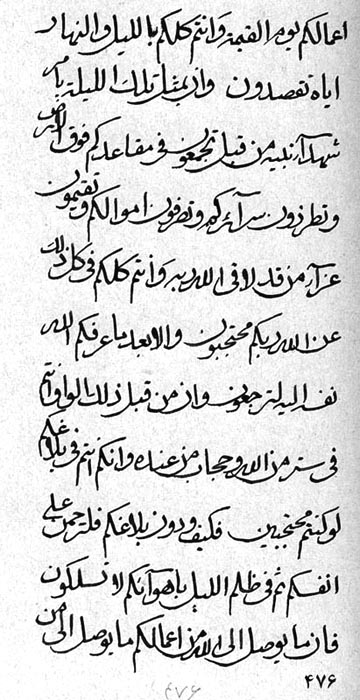 اعمالكم يوم القيمة وانتم كلكم بالليل والنهار
اياه تقصدون وان بمثل تلك الليلة يامر
شهدآء نبيه من قبل تجمعون في مقاعدكم فوق الارض
وتطرزون سرآئركم وتصرفون اموالكم وتقيمون
عزآء من قد لاقى الله ربه وانتم كلكم في كل ذلك
عن الله ربكم محتجبون والا بعد ما عرفكم الله
نفسه اليه لترجعون وان من قبل ذلك الواو انتم
في ستر من الله وحجاب من عنده وانكم انتم في بلاغكم
لو كنتم محتجبين فكيف ودون بلاغكم فلترحمن على
انفسكم ثم في ظلم الليل باهوآئكم لا تسلكون
فان ما يوصل الى الله من اعمالكم ما يوصل الى من
۴۷۶
۴۷۶